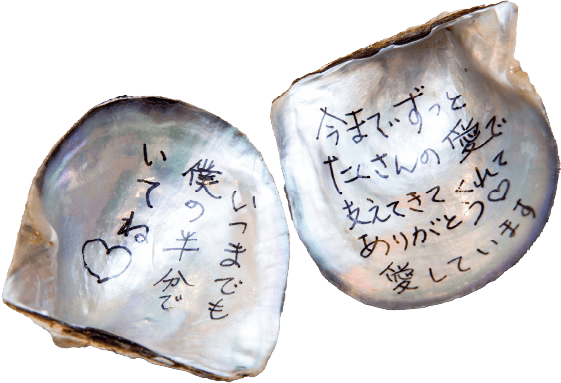 いつまでも
僕の半分で
いてね♡
今までずっと
たくさんの愛で
支えてきてくれて
ありがとう♡
愛しています